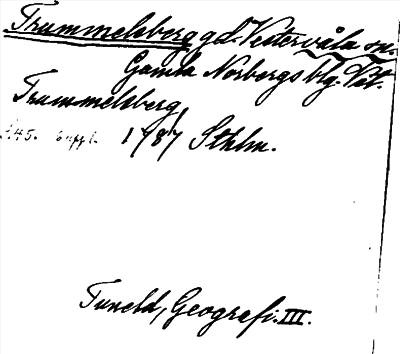 Trummelsberg gd. Vestervåla sn.
Gamla Norbergs blg. Vst.
Trummelsberg,
1787 Sthlm.
Tuneld, Geografi. III.